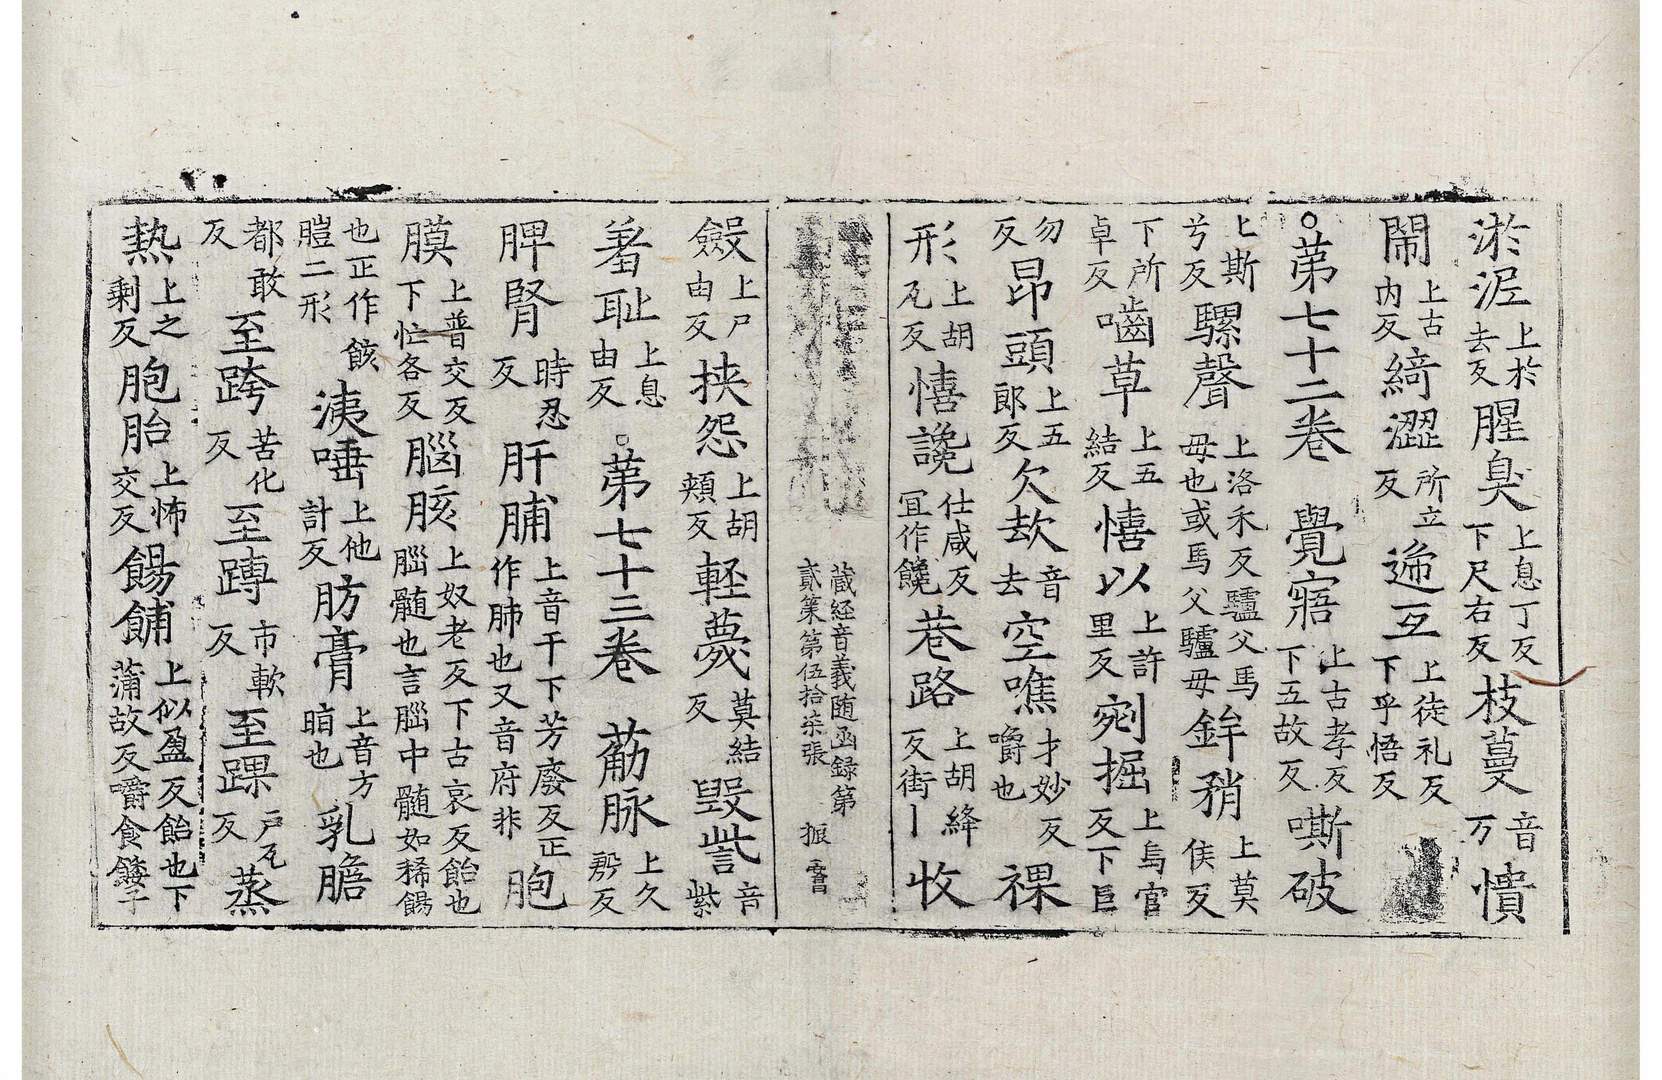 淤泥上於去反腥臭上息丁反下尺右反枝蔓音万憒
閙上古内反綺澀所立反逓互上徒礼反下乎悟反
○苐七十二卷 覺寤上古孝反下五故反嘶破
上斯兮反騾聲上洛禾反驢父馬母也或馬父驢母鉾矟上莫侯反
下所卓反嚙草上五結反憘以上許里反剜掘上烏官反下巨
勿反昂頭上五郎反欠㰦音去空噍才妙反嚼也祼
形上胡瓦反憘讒仕咸反冝作饞巷路上胡絳反街丨收
藏経音義随函録第貳第伍拾柒張 振
斂上尸由反挟怨上胡頰反軽薎莫結反毀訾音紫
羞耻上息由反○苐七十三卷 筋脉上久靳反
脾腎時忍反肝脯上音干下芳廢反正作肺也又音府非胞
膜上普交反下忙各反腦胲上奴老反下古哀反飴也腦髄也言腦中髄如稀餳
也正作餩膯二形洟唾上他計反肪膏上音方䐃也乳膽
都敢反至跨苦化反至䏝市軟反至踝戸瓦反蒸
熱上之剰反胞胎上怖交反餳餔上似盈反飴也下蒲故反嚼食餧子